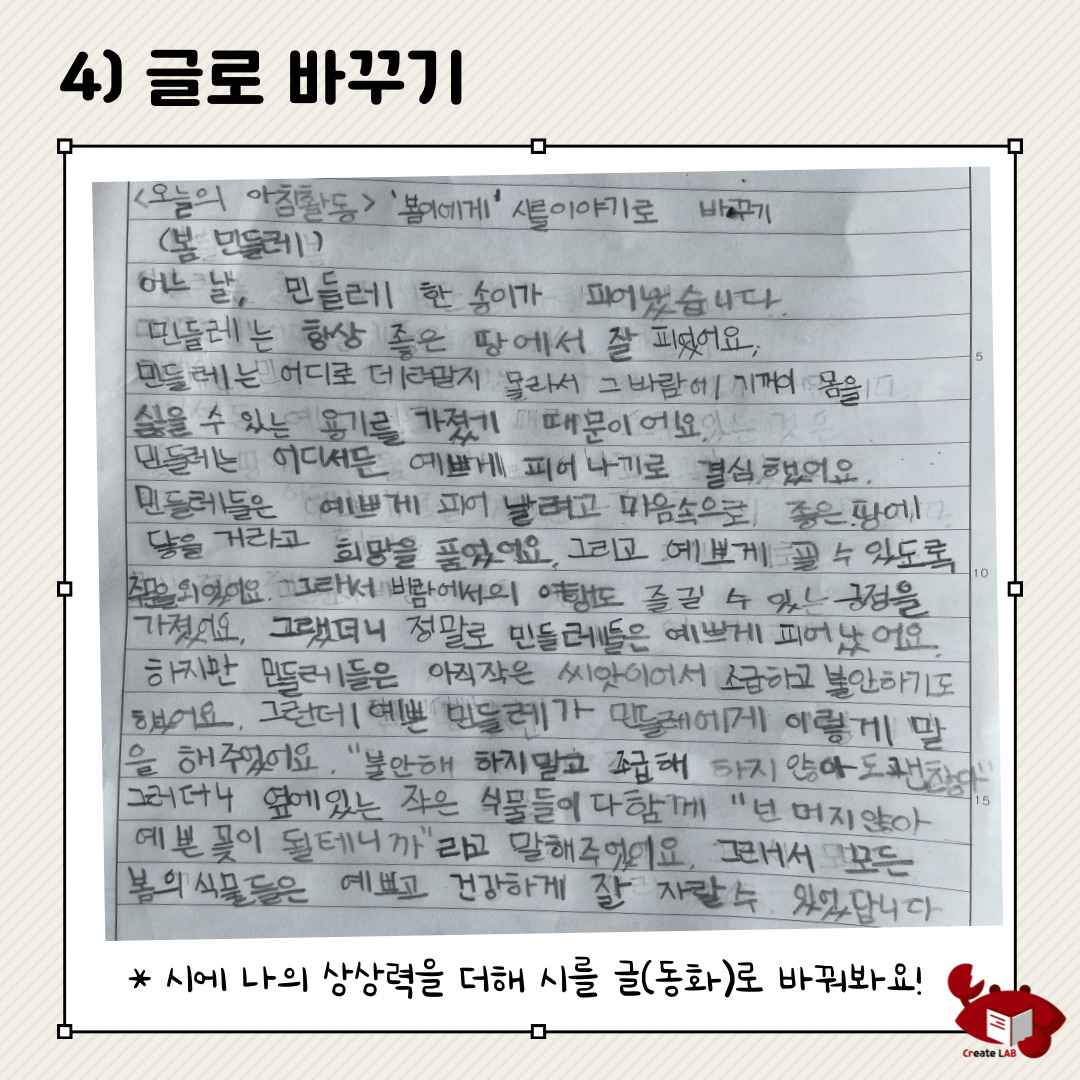 4) 글로 바꾸기
<오늘의 아침활동> '봄에게' 시를이야기로 바꾸기
(봄 민들레)
어느 날, 민들레 한 송이가 피어났습니다.
민들레는 항상 좋은 땅에서 잘 피었어요.
민들레는 어디로 몰라서 그 바람에 기꺼이 몸을
싫을 수 있는 용기를 가졌기 때문이어요.
민들레는 어디서든 예쁘게 피어나기로 결심했었어요.
민들레들은 예쁘게 피어 날려고 마음속으로 좋은 땅에
닿을 거라고 희망을 품었어요. 그리고 예쁘게 필 수 있도록
외웠어요. 그래서 바람에서의 여행도 즐길 수 있는 긍정을
가졌어요. 그랬더니 정말로 민들레들은 예쁘게 피어났어요.
하지만 민들레들은 아직작은 씨앗이어서 조급하고 불안하기도
했어요. 그런데 예쁜 민들레가 민들레에게 이렇게 말
을 해주었어요. "불안해 하지말고 조급해 하지 않아도괜찮아"
그러더니 옆에있는 작은 식물들이 다함께 "넌 머지않아
예쁜 꽃이 될테니까"라고 말해주었어요. 그래서 모든
봄의식물들은 예쁘고 건강하게 잘 자랄수 있었답니다
5
10
15
* 시에 나의 상상력을 더해 시를 글(동화)로 바꿔봐요!
Create LAB